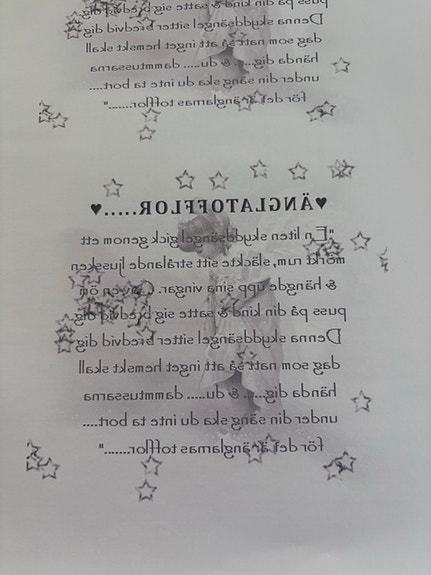 puss på din kind & satte sig bredvid dig.
Denna skyddsängel sitter bredvid dig
dag som natt så att inget hemskt skall
hända dig..... & du..... dammtussarna
under din säng ska du inte ta bort....
för det är änglarnas tofflor......."
♥ÄNGLATOFFLOR.....♥
"En liten skyddsängel gick genom ett
mörkt rum, släckte sitt strålande ljussken
& hängde upp sina vingar. Gav en öm
puss på din kind & satte sig bredvid dig.
Denna skyddsängel sitter bredvid dig
dag som natt så att inget hemskt skall
hända dig..... & du..... dammtussarna
under din säng ska du inte ta bort....
för det är änglarnas tofflor......."